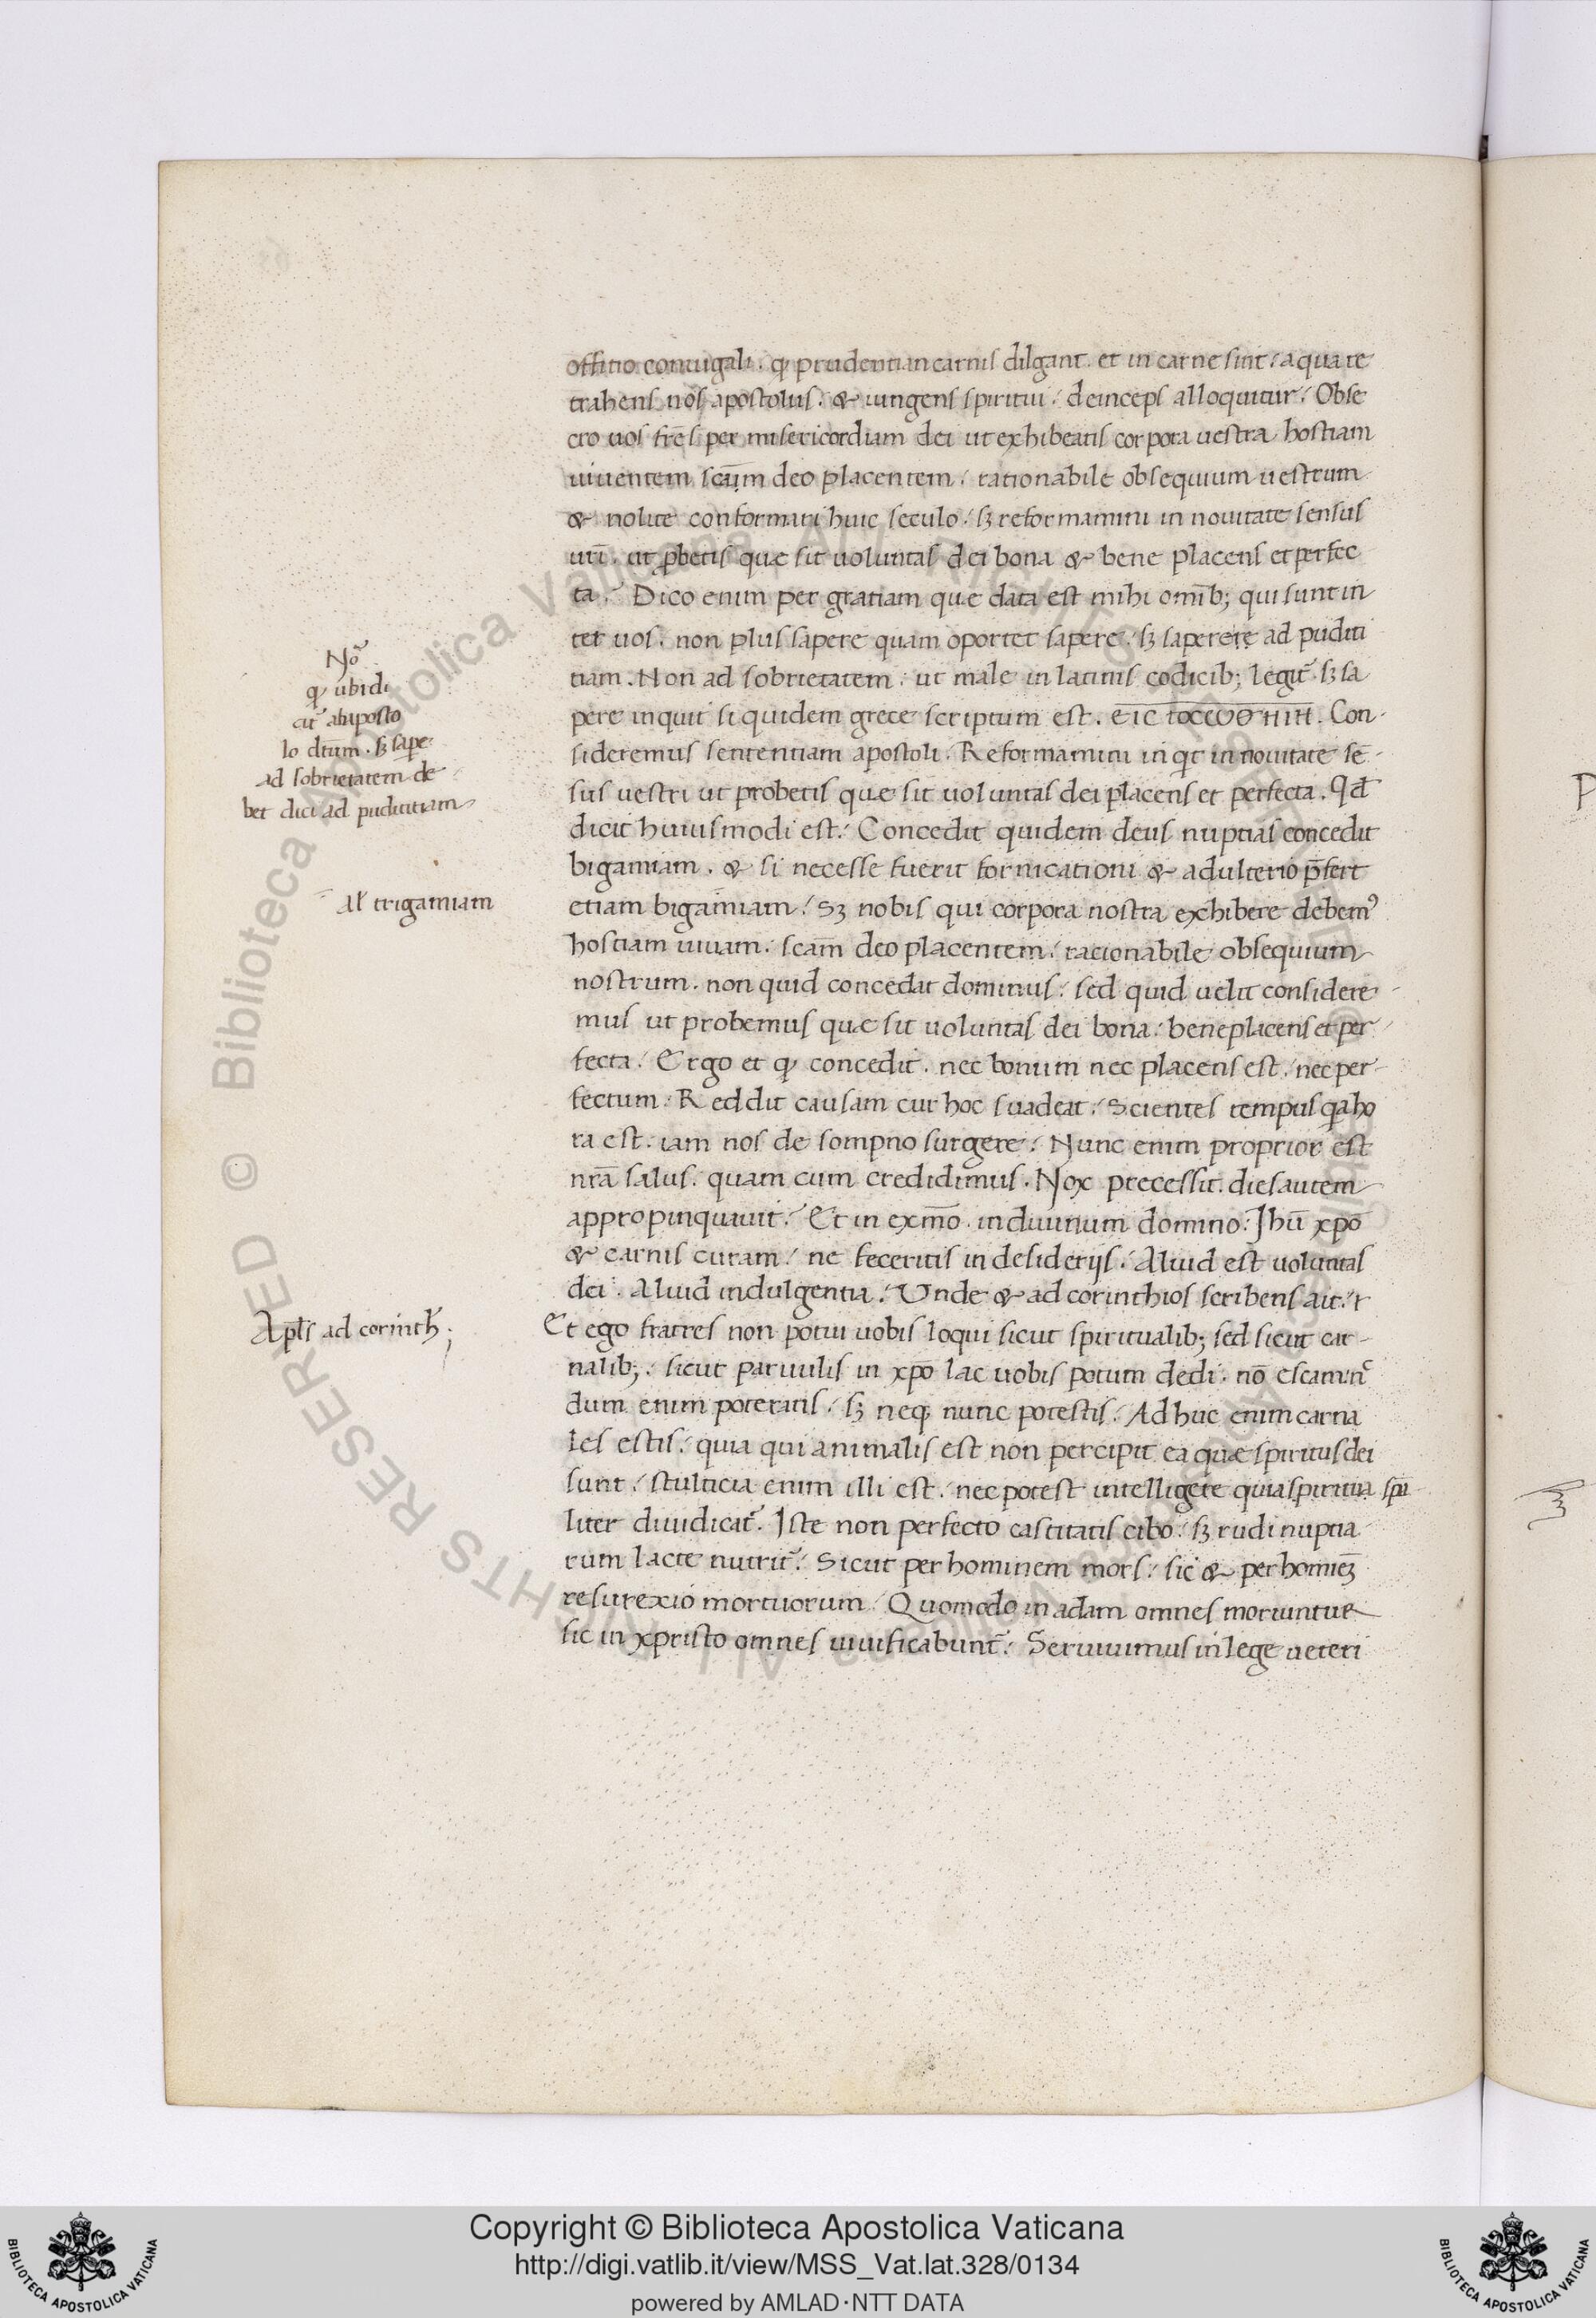 offitio coniugali. ꝙ prudentiam carnis dilgant. et in carne sint. a qua re
trahens nos apostolus. & iungens spiritui. deinceps alloquitur. Obse
cro uos fr̄es per misericordiam dei ut exhibeatis corpora uestra hostiam
uiuentem sc̄am deo placentem. rationabile obsequium uestrum
& nolite conformari huic seculo. sꝫ reformamini in nouitate sensus
ur̄i. ut ꝓbetis quæ sit uoluntas dei bona & bene placens et perfec
ta. Dico enim per gratiam que data est mihi omīb; qui sunt in
ter uos. non plus sapere quam oportet sapere. sꝫ saperere ad puditi
tiam. Non ad sobrietatem. ut male in latinis codicib; legit᷑. sꝫ sa
pere inquit si quidem grece scriptum est. Con
sideremus sententiam apostoli. Reformamini inqͥt in nouitate sē
sus uestri ut probetis quæ sit uoluntas dei placens et perfecta. Qd̄
dicit huiusmodi est. Concedit quidem deus nuptias concedit
bigamiam. & si necesse fuerit fornicationi & adulterio p̄fert
etiam bigamiam. Sꝫ nobis qui corpora nostra exhibere debemꝰ
hostiam uiuam. sc̄am deo placentem. racionabile obsequium
nostrum. non quid concedat dominus. sed quid uelit considere
mus ut probemus quæ sit uoluntas dei bona. beneplacens et per
fecta. Ergo et ꝙ concedit. nec bonum nec placens est. nec per
fectum. Reddit causam cur hoc suadeat. Scientes tempus qa ho
ra est. iam nos de sompno surgere. Nunc enim proprior est
nr̄a salus. quam cum credidimus. Nox precessit. dies autem
appropinquauit. Et in exm̄o. induimini domino. Ihū xp̄o
& carnis curam. ne feceritis in desiderijs. Aliud est uoluntas
dei. Aliud indulgentia. Unde & ad corinthios scribens ait.
Et ego fratres non potui uobis loqui sicut spiritualib; sed sicut car
nalib;. sicut paruulis in xp̄o lac uobis potum dedi. nō escam.
dum enim poteratis. sꝫ neq; nunc potestis. Adhuc enim carna
les estis. quia qui animalis est non percipit ea quæ spiritus dei
sunt. stulticia enim illi est. nec potest intelligere quia spiritua sp̄ū
liter diuidicat᷑. Iste non perfecto castitatis cibo. sꝫ rudi nuptia
rum lacte nutrit᷑. Sicut per hominem mors. sic & per homīeꝫ
resurexio mortuorum. Quomodo in adam omnes moriuntur
sic in xpristo omnes uiuificabunt᷑. Seruiuimus in lege ueteri
Nō
ꝙ ubi di
cit᷑ ab aposto
lo dtūm. sꝫ sape
ad sobrietatem de
bet dici ad puditiam
Al' trigamiam
Apl̄s ad corinth̄;